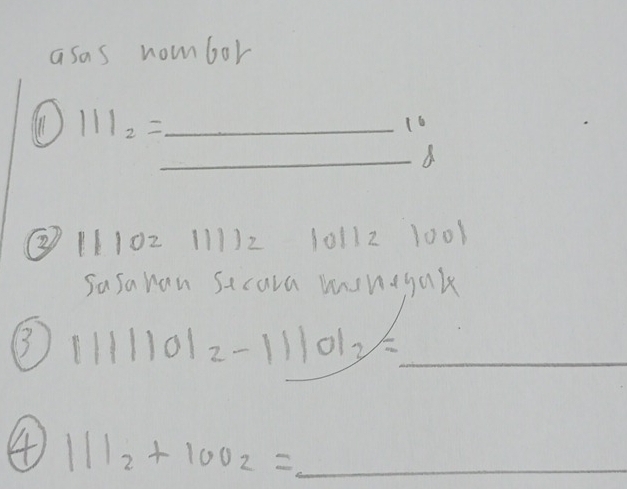 asas nombor
① 111₂ = __________ 10
__________ 8
② 1110₂ 1111₂ 1011₂ 1001
Susunan secara menegak
③ 1111101₂ - 11101₂ = __________
④ 111₂ + 100₂ = __________